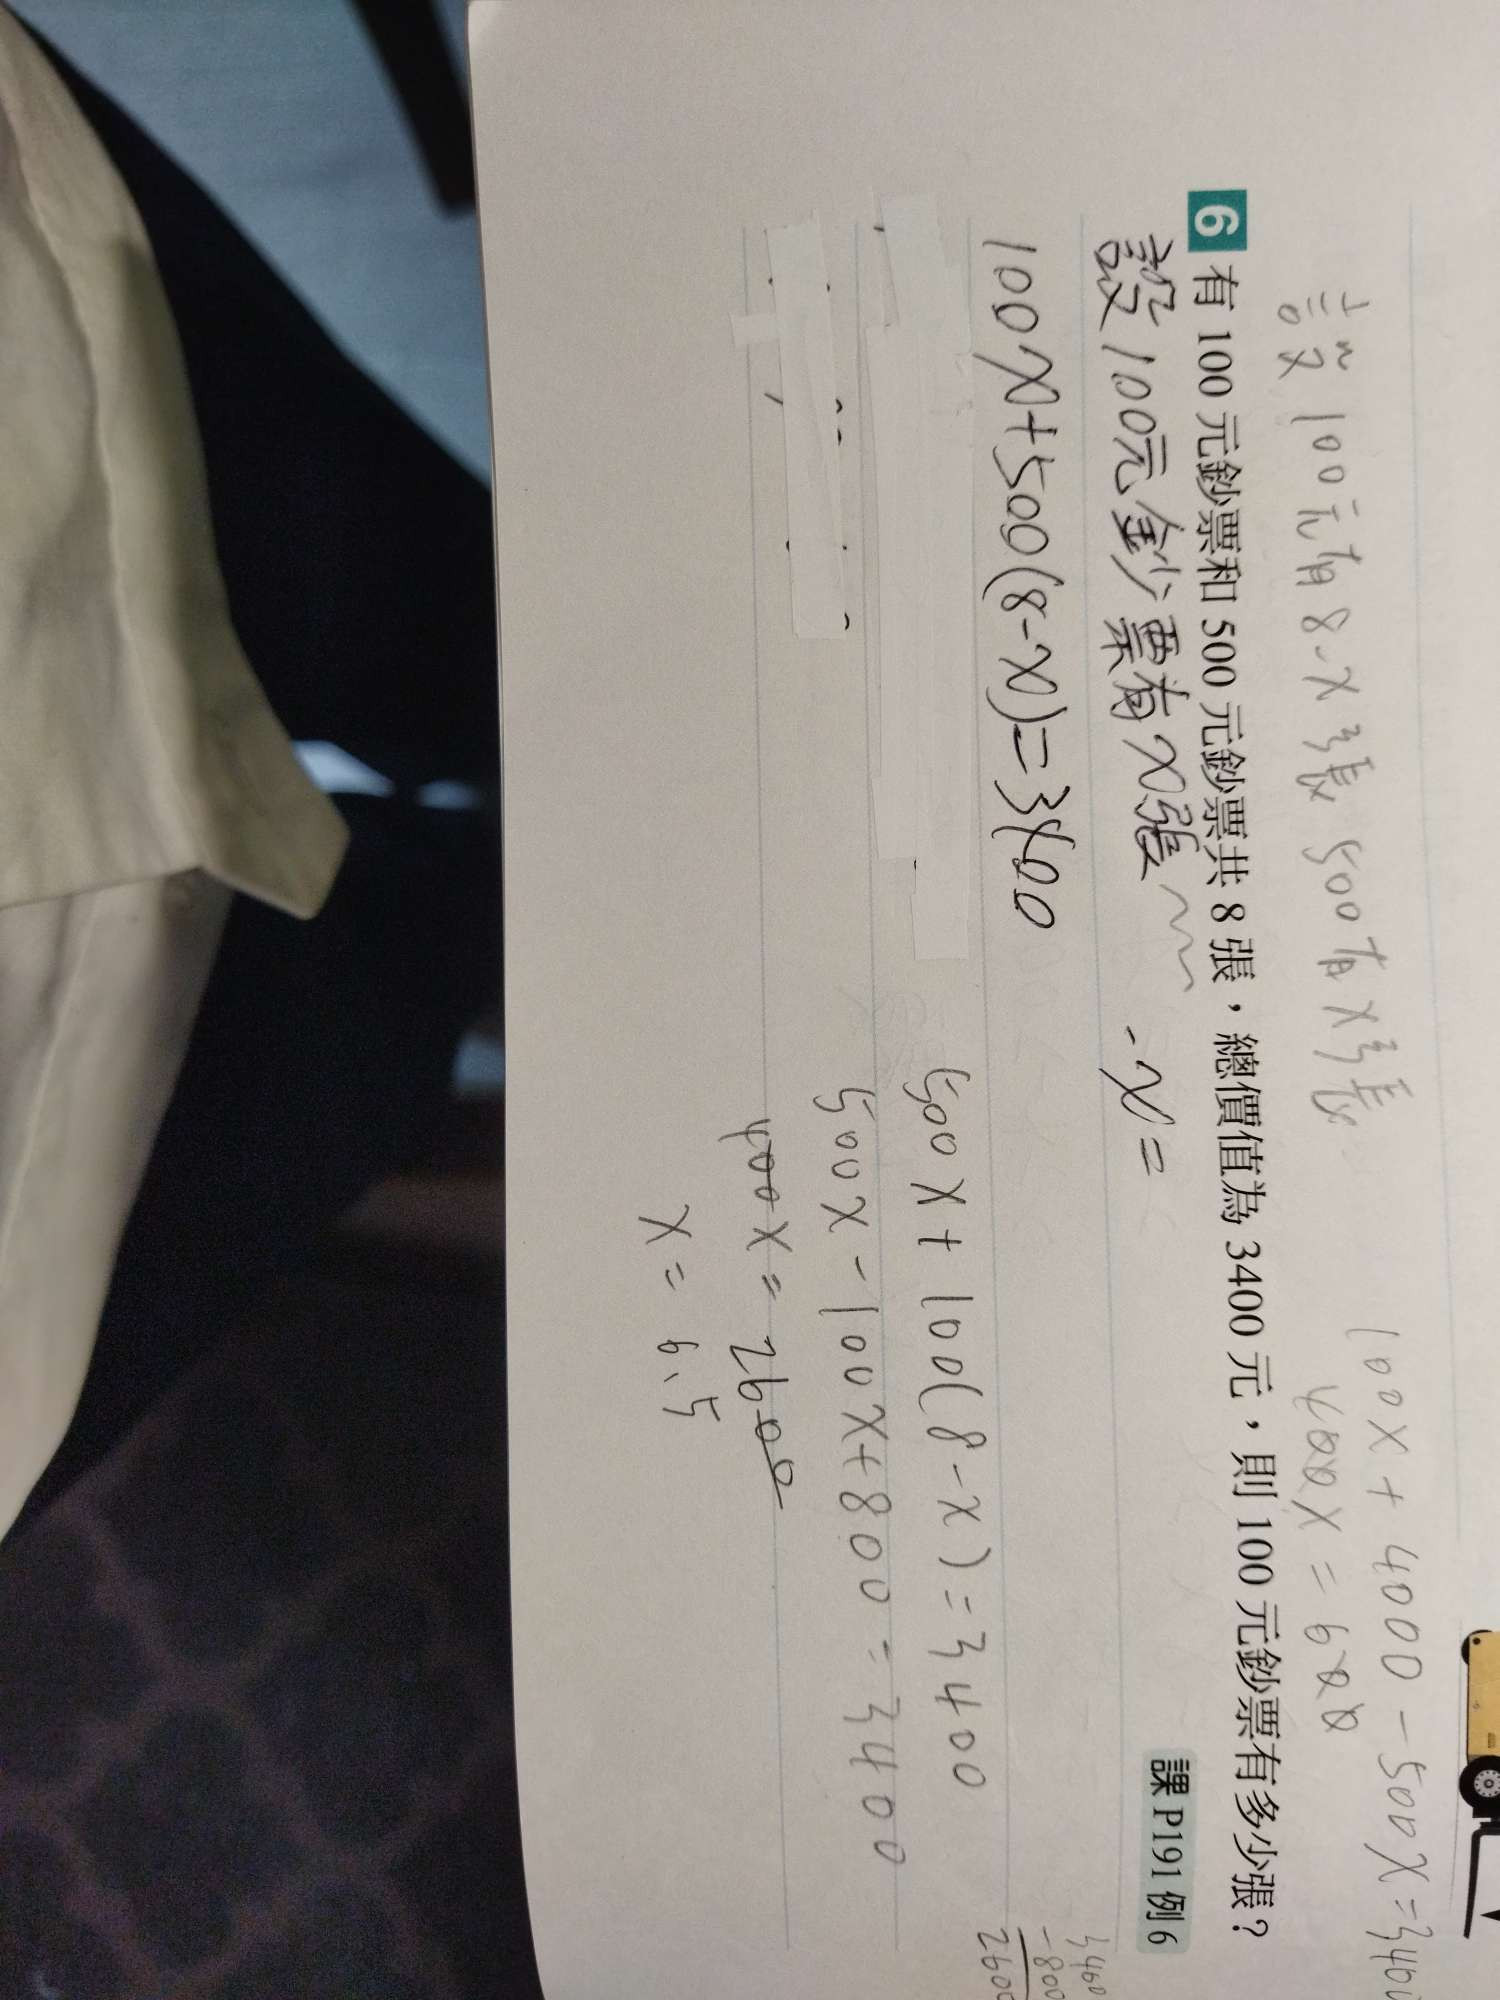 設100元有8-x張 500有x張
100x+4000-500x=3400
400x=600
6 有 100 元鈔票和 500 元鈔票共 8 張，總價值為 3400 元，則 100 元鈔票有多少張？
課 P191 例 6
設100元鈔票有x張
-x=
100x+500(8-x)=3400
3400
-800
2600
500x+100(8-x)=3400
500x-100x+800=3400
400x=2600
x=6.5